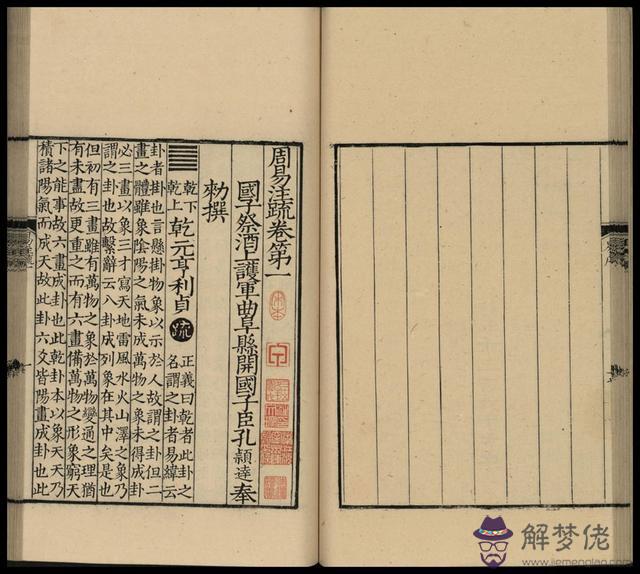 周易注疏卷第一
國子祭酒上護軍曲阜縣開國子臣孔穎達奉
勑撰
乾下
乾上
乾元亨利貞 疏
正義曰乾者此卦之
名謂之卦者易緯云
卦者掛也言懸掛物象以示於人故謂之卦但二
畫之體雖象陰陽之氣未成萬物之象未得成卦
必三畫以象三才寫天地雷風水火山澤之象乃
謂之卦也故繫辭云八卦成列象在其中矣是也
但初有三畫雖有萬物之象於萬物變通之理猶
有未盡故更重之而有六畫備萬物之形象窮天
下之能事故六畫成卦也此乾卦本以象天天乃
積諸陽氣而成天故此卦六爻皆陽畫成卦也此
宋本
解梦佬
www.jiemenglao.com